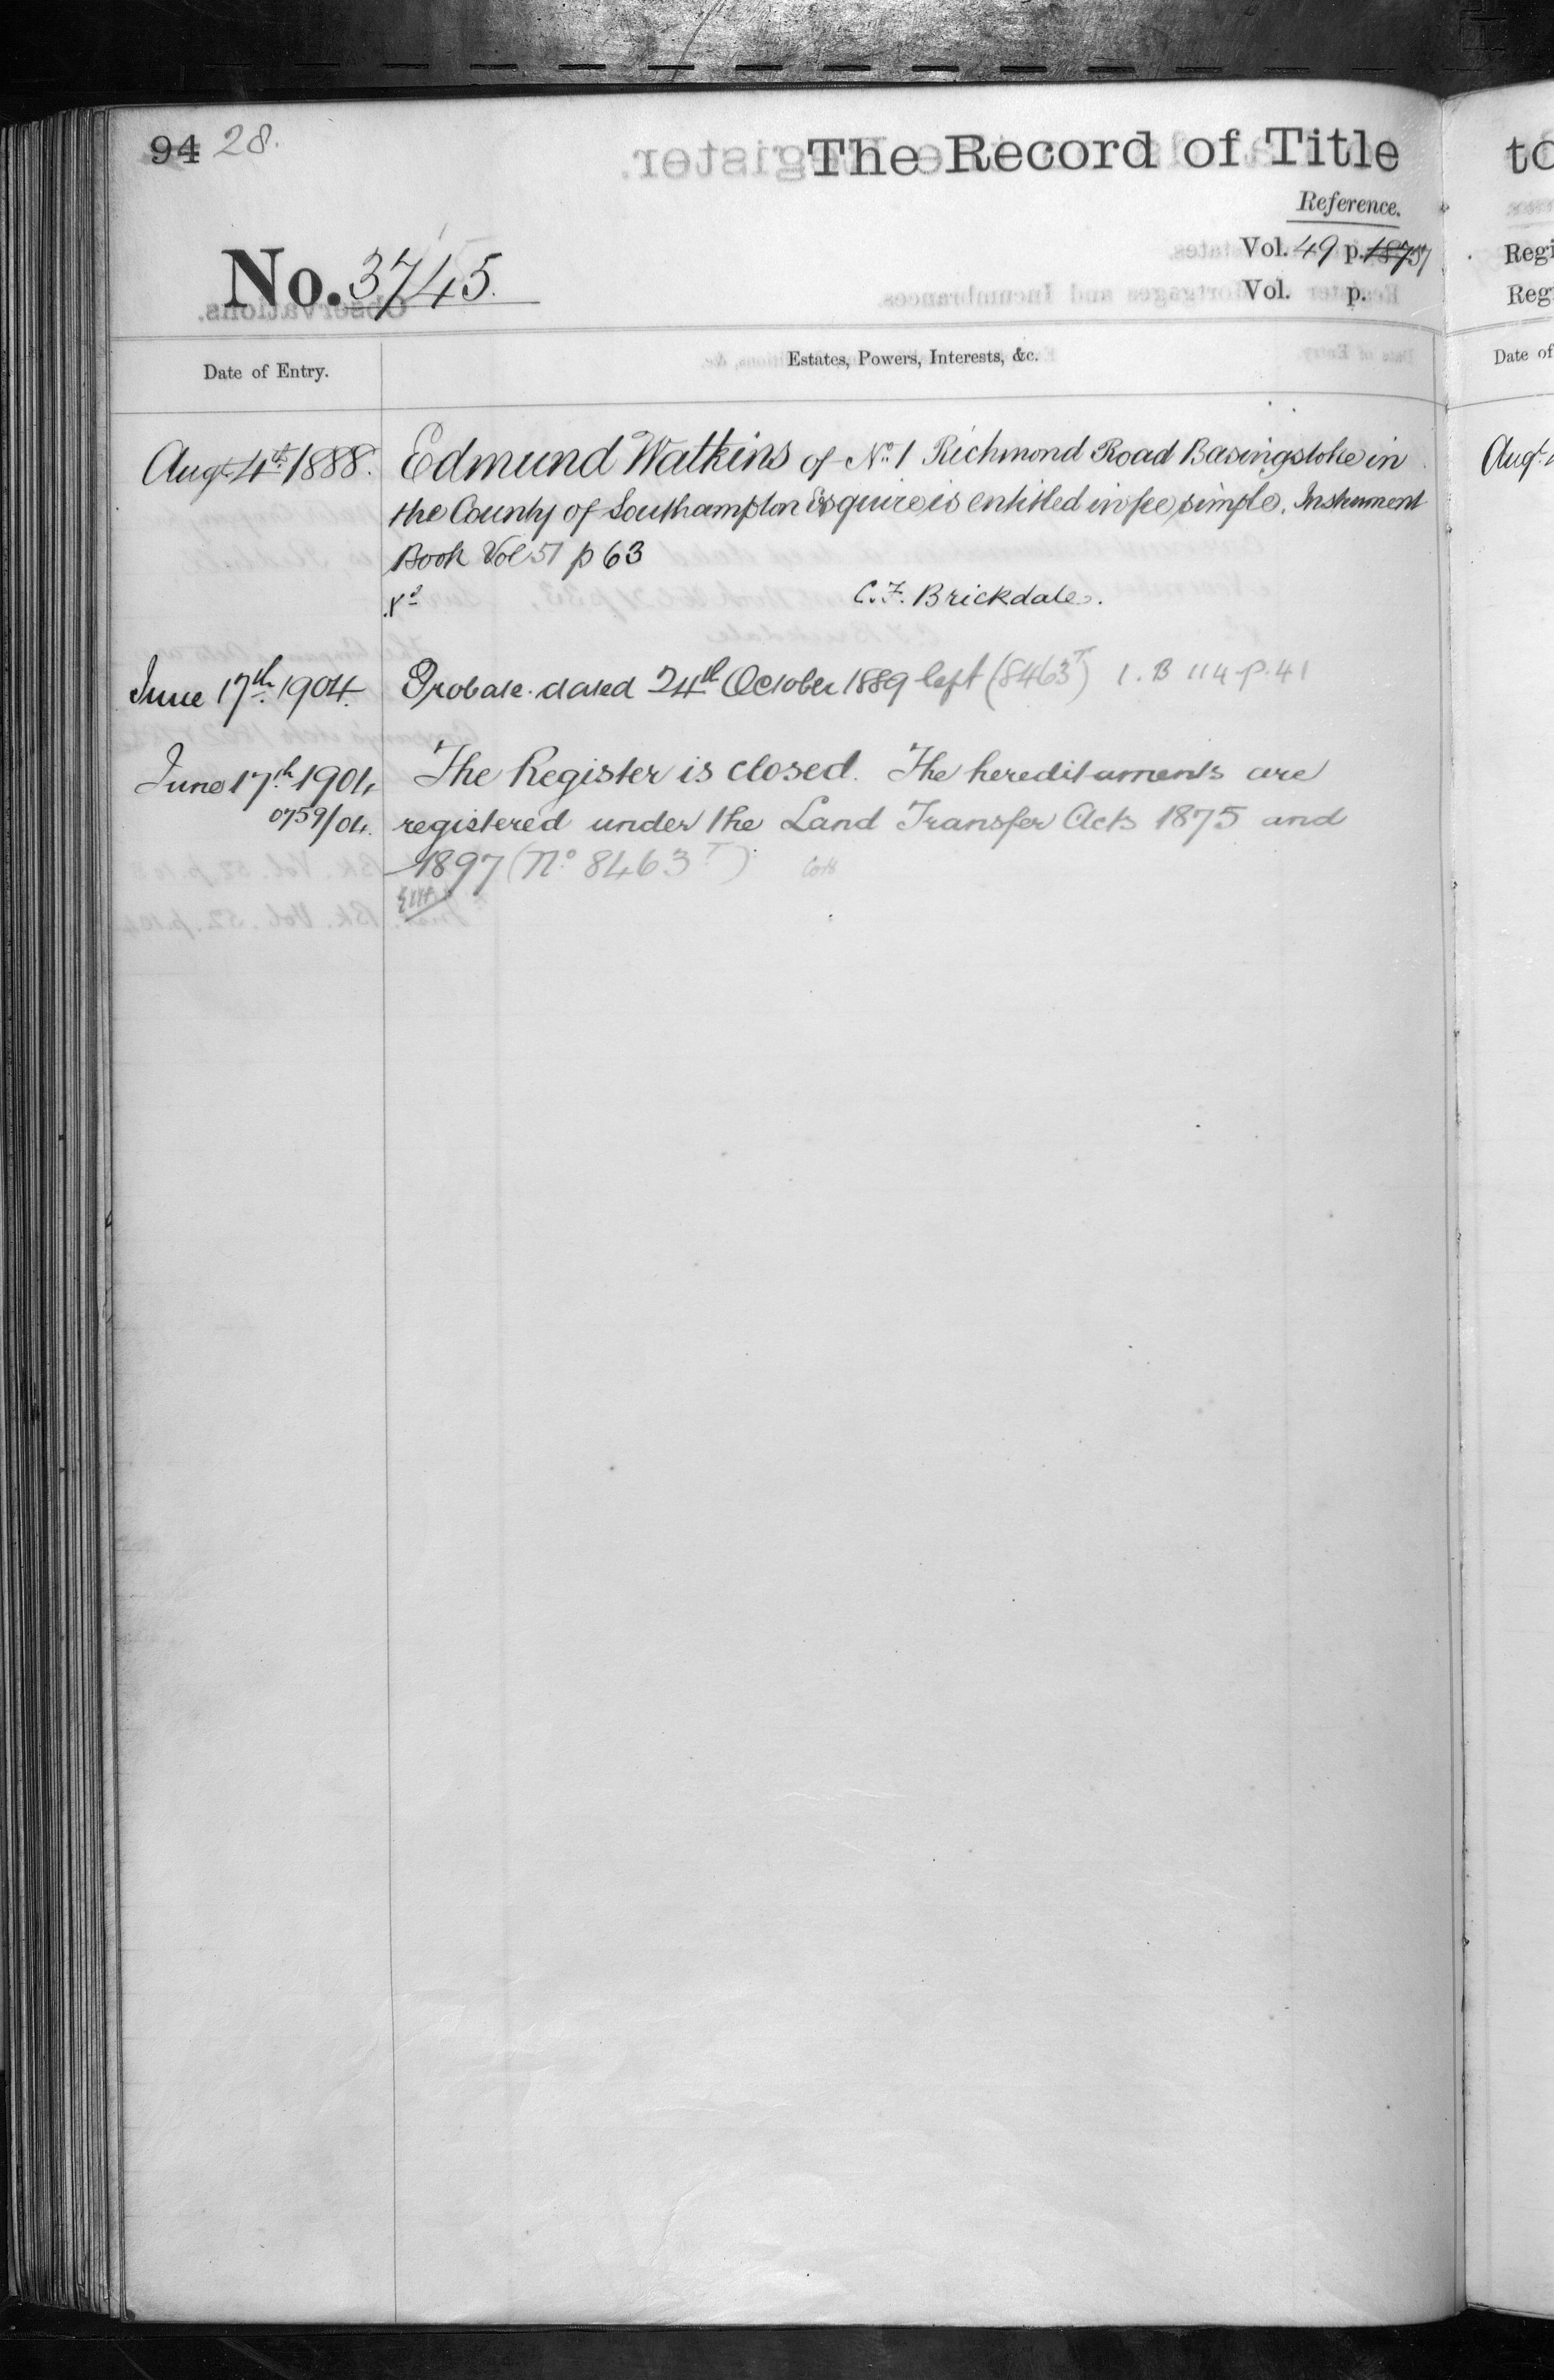 94 28.
The Record of Title
Reference.
Vol. 49 p.
No. 3745.
Vol. p.
Date of Entry.
Estates, Powers, Interests, &c.
Augt. 4th. 1888.
Edmund Watkins of No. 1 Richmond Road Basingstoke in
the County of Southampton Esquire is entitled in fee simple. Instrument
Book Vol 51 p 63
C. F. Brickdale.
June 17th. 1904.
Probate dated 24th October 1889 left (8463T) I. B 114 p. 41
June 17th. 1904
The Register is closed. The hereditaments are
0759/04.
registered under the Land Transfer Acts 1875 and
1897 (No. 8463T)
to
Regi
Reg
Date of
Augt.